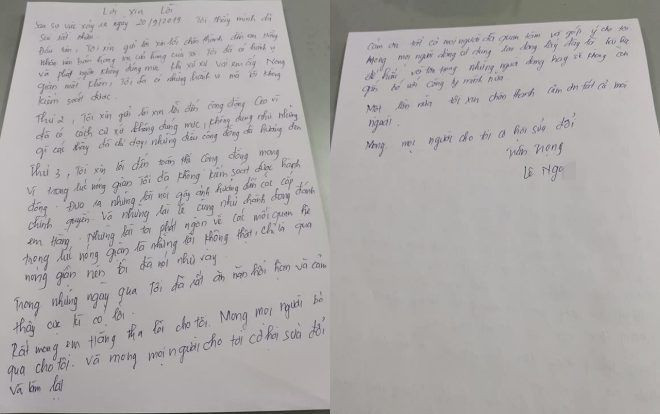 Lời xin lỗi
Sau sự việc xảy ra ngày 20/9/2019 Tôi thấy mình đã
sai rất nhiều.
Đầu tiên, Tôi xin gửi lời xin lỗi chân thành đến em Hằng
nhân viên bán hàng của cửa hàng. Tôi đã có hành vi
và phát ngôn không đúng mực khi xử xự với em ấy. Nóng
giận mất khôn, Tôi đã có những hành vi mà tôi không
kiểm soát được.
Thứ 2, Tôi xin gửi lời xin lỗi đến cộng đồng. Cao vì
đã có cách cư xử không đúng mực, không đúng như những
gì các thầy đã chỉ dạy, những điều cộng đồng đã hướng đến
Thứ 3, Tôi xin lỗi đến toàn thể cộng đồng mạng
vì trong lúc nóng giận tôi đã không kiểm soát được hành
động. Đưa ra những lời nói gây ảnh hưởng đến các cấp
chính quyền. Và những lời lẽ cũng như hành động đánh
em Hằng. Những lời tôi phát ngôn về các mối quan hệ
trong lúc nóng giận là những lời không thật, chỉ là quá
nóng giận nên tôi đã nói như vậy.
Trong những ngày qua Tôi đã rất ăn năn hối hận và cảm
thấy cực kì có lỗi.
Rất mong em Hằng tha lỗi cho tôi. Mong mọi người bỏ
qua cho tôi. Và mong mọi người cho tôi cơ hội sửa đổi
và làm lại
Cảm ơn tất cả mọi người đã quan tâm và góp ý cho tôi
Mong mọi người đừng sử dụng lan
để hiểu và tôn trọng những người đang hay sẽ không còn
gắn bó với công ty mình nữa.
Một lần nữa tôi xin chân thành cảm ơn tất cả mọi
người.
Mong mọi người cho tôi cơ hội sửa đổi
Trân trọng
Lê Nga